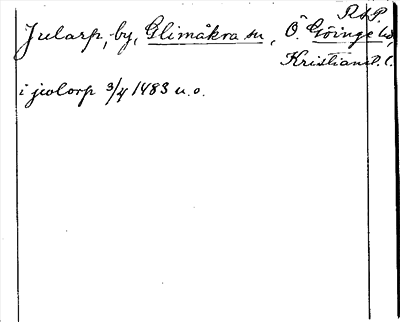 R.A.P.
Jularp, by, Glimåkra sn, Ö. Göinge
Kristianst.
i jwlorp 3/4 1483 u.o.